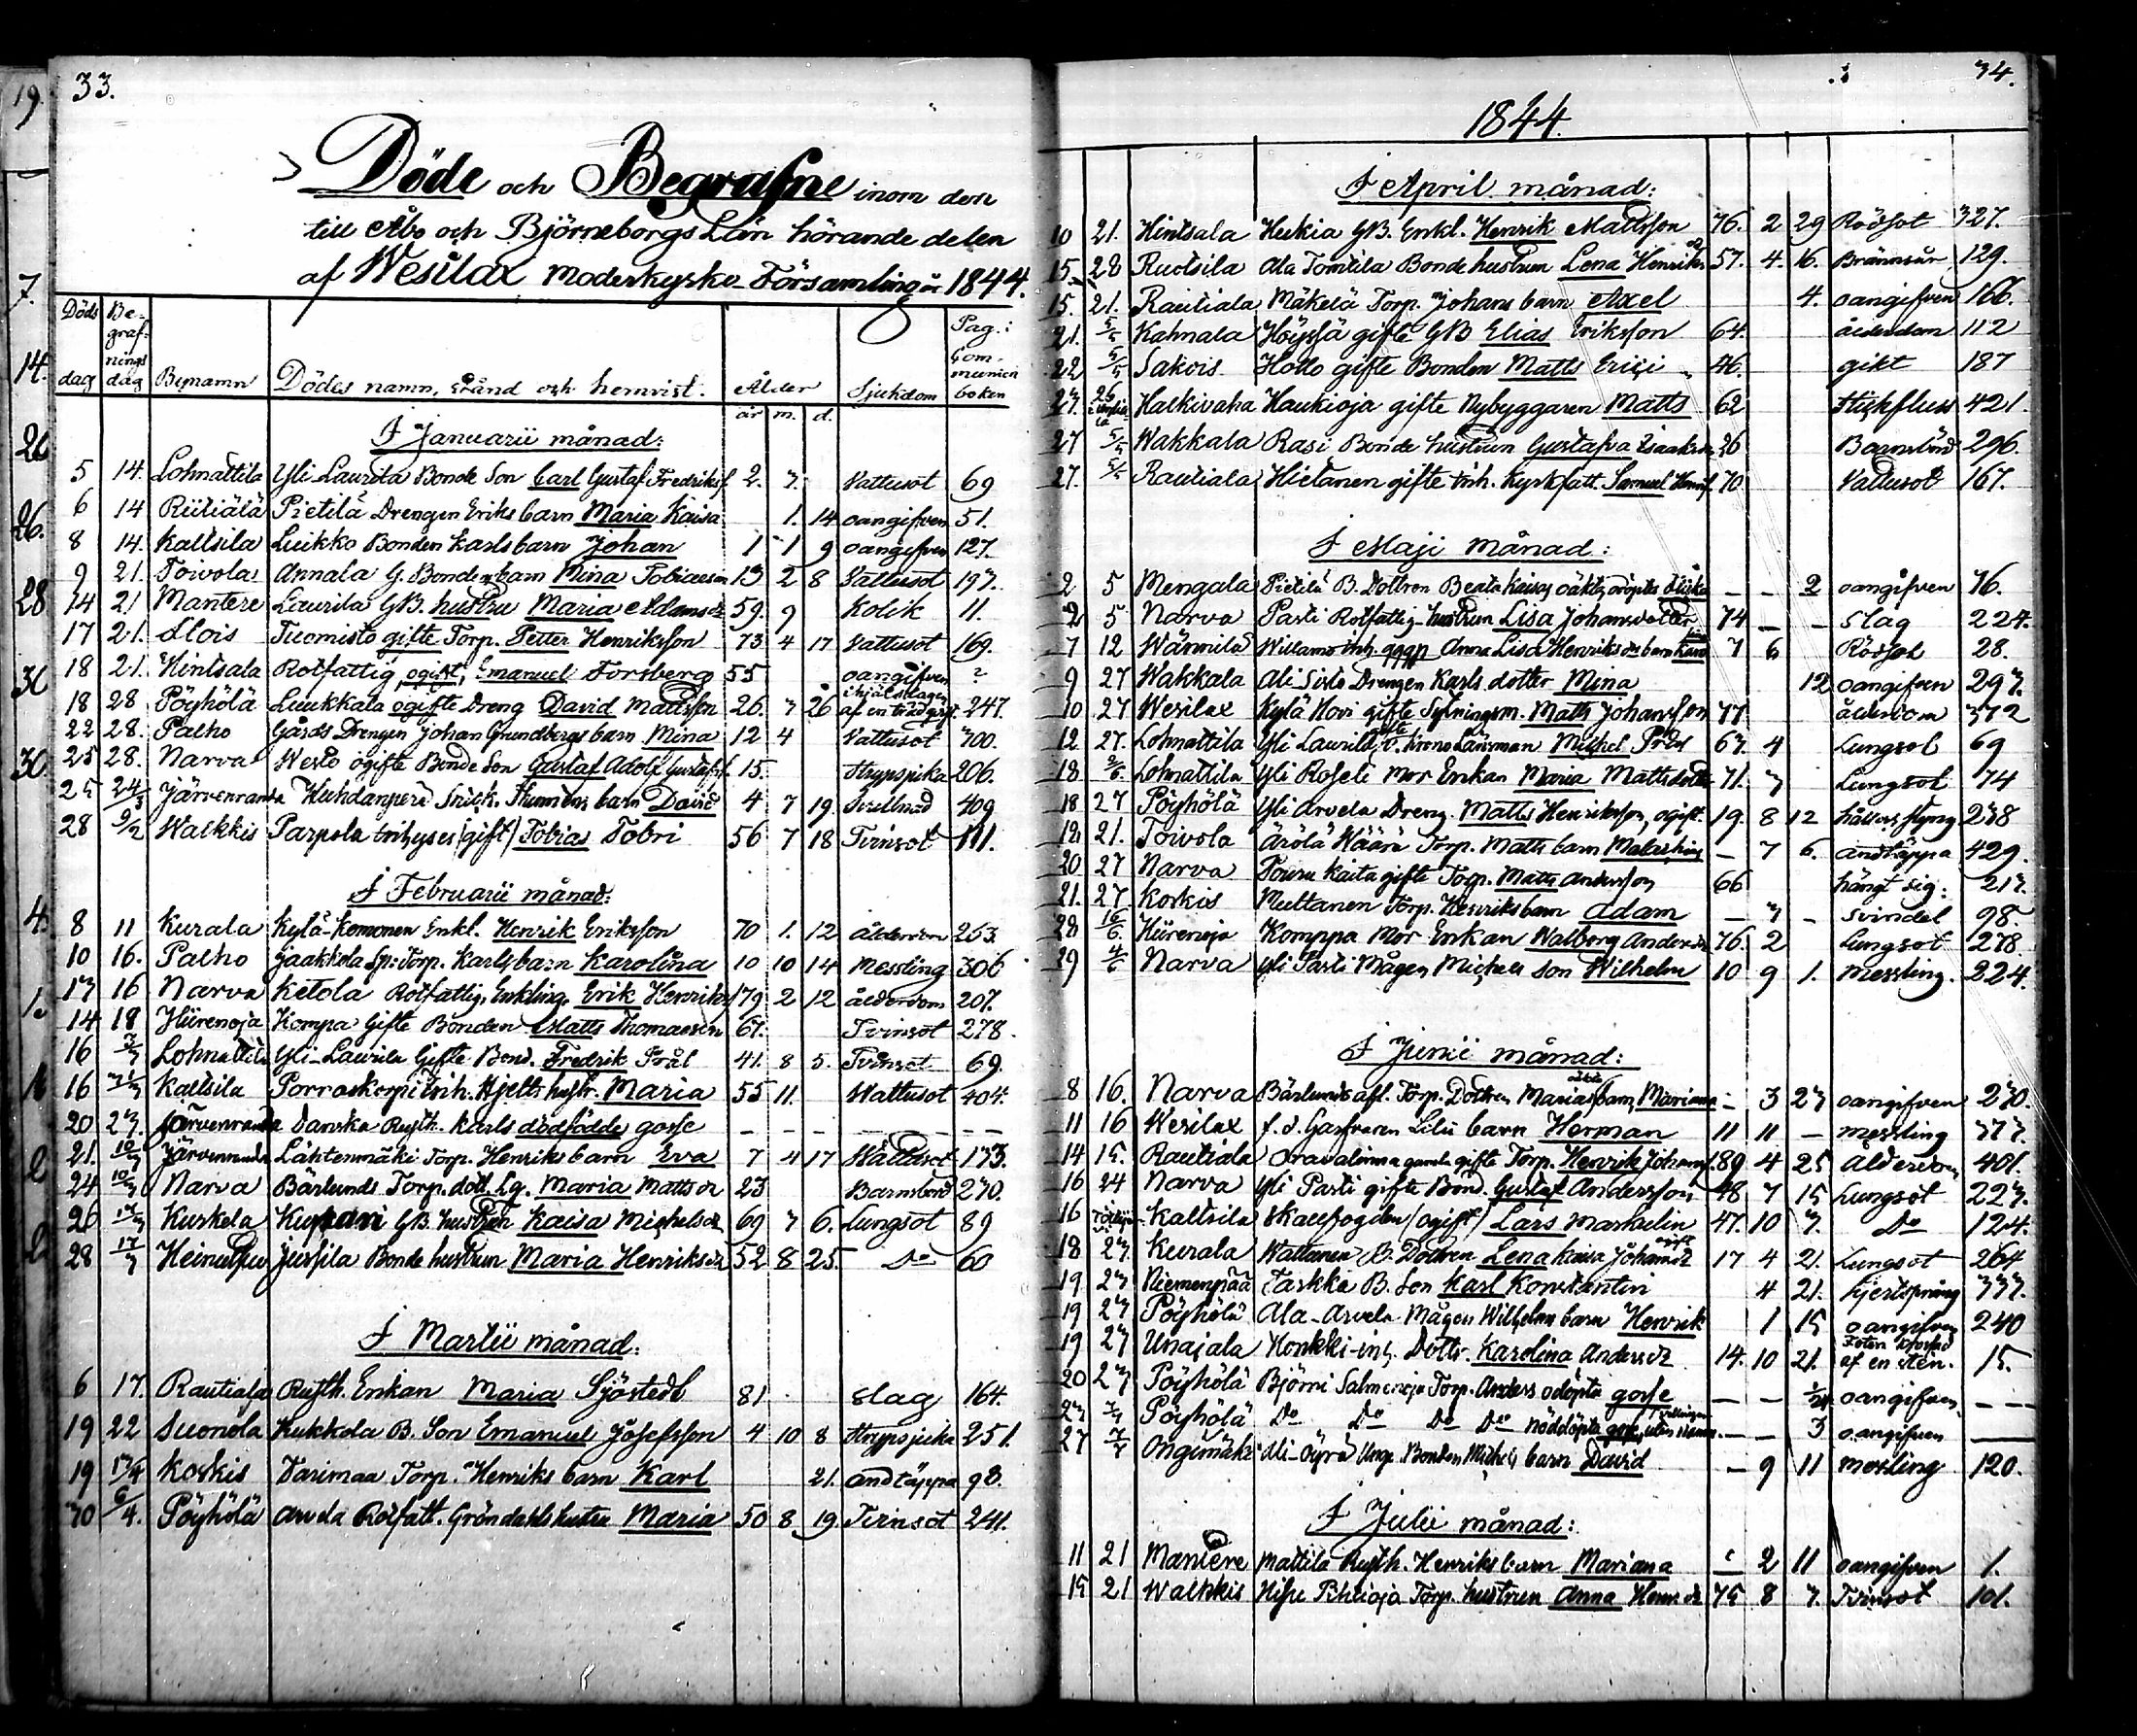 33.
Döde och Begrafne inom den
till Åbo och Björneborgs Län hörande delen
af Wesilax Moderkyrko-Församling år 1844.
Döds dag Begrafnings dag Bynamn Dödes namn, stånd och hemvist. Ålder Sjukdom Pag.: Communion boken
år m. d.
I Januarii månad:
5 14. Lohnattila Yli-Laurila Bonde Son Carl Gustaf Fredriksf 2. 7. Vattusot 69
6 14 Riitiälä Pietilä Drengen Eriks barn Maria Kaisa 1. 14 oangifven 51.
8 14. Kaltsila Luikko Bonden Karls barn Johan 1 1 9 oangifven 127.
9 21. Toivola Annala G. Bonden barn Mina Tobiaesson 13 2 8 Vattusot 197.
14 21 Mantere Laurila GB. hustru Maria Adamsdr 59. 9 Kolik 11.
17 21. Alois Tuomisto gifte Torp. Petter Henriksson 73 4 17 Vattusot 169.
18 21. Hintsala Rotfattig, ogift, Emanuel Forsberg 55 oangifven ?
18 28 Pöyhölä Luukkala ogifte Dreng David Mattsson 26. 7 26 ihjälslagen af en träd gren. 247.
22 28. Palho Gårds Drengen Johan Grundbergs barn Mina 12 4 Vattusot 300.
25 28. Narva Westo ogifte Bonde Son Gustaf Adolf Gustafsf. 15. Strypsjuka 206.
25 24/3 Järvenranta Huhdanperä Snick. barn David 4 7 19. Svullnad 409
28 9/2 Walkkis Parpola inhyses (gift) Tobias Tobri 56 7 18 Tvinsot 111.
I Februarii månad:
8 11 Kurala Kylä-Komonen Enkl. Henrik Eriksson 70 1. 12 ålderdom 263.
10 16. Palho Jaakkola Sp: Torp. Karls barn Karolina 10 10 14 Messling 306
13 16 Narva Ketola Rotfattig. Enkling. Erik Henriksf 79 2 12 ålderdom 207.
14 18 Hiirenoja Kompa Gifte Bonden Matts Thomasson 67. Tvinsot 278.
16 3/3 Lohnattila Yli-Laurila Gifte Bond. Fredrik Pråt 41. 8 5. Tvinsot 69.
16 31/3 Kaltsila Porraskorpi inh. Hjelts hustr. Maria 55 11. Wattusot 404.
20 23. Järvenranta Danska Rusth. Karls dödfödde gosse – – – – –
21. 10/3 Järvenranta Lähtenmäki Torp. Henriks barn Eva 7 4 17 Wattusot 173.
24 10/3 Narva Bärlunds Torp. dott. Eg. Maria Matts dr 23 Barnsbörd 270.
26 Kurkela Kupari GB hustrun Kaisa Michels dr 69 7 6. Lungsot 89
28 17/3 Jussila Bonde hustrun Maria Henriks dr 52 8 25. Do 60
I Martii månad:
6 17. Rautiala Rusth. Enkan Maria Sjöstedt 81 slag 164.
19 22 Suonola Kukkola B. Son Emanuel Josefsson 4 10 8 Strypsjuka 251.
19 Korkis Varimaa Torp. Henriks barn Karl 21. andtäppa 98.
30 6/4. Pöyhölä Arvela Rotfatt. Gröndahls hustru Maria 50 8 19. Tvinsot 241.
34.
1844.
I April månad:
10 21. Hintsala Heikia GB. Enkl. Henrik Mattsson 76. 2 29 Rödsot 327.
15. 28 Ruotsila Ala Tomtila Bonde hustrun Lena Henriks dr 57. 4. 16. Brännsår 129.
15. 21. Rautiala Mäkelä Torp. Johans barn Axel 4. oangifven 166.
21. 5/5 Kahnala Höyssä gifte GB Elias Eriksson 64. ålderdom 112
22 5/5 Sakois Hollo gifte Bonden Matts Erici 46. gikt 187
23. 26 Halkivaha Haukioja gifte Nybyggaren Matts 62 Stickfluss 421.
27 5/5 Wakkala Rasi Bonde hustrun Gustafva Isaaks dr 26 Barnsbörd 296.
27. 5/5 Rautiala Hietanen gifte inh. Kyrkfatt. Samuel Henrsf 70 Vattusot 167.
I Maji månad:
2 5 Mengala Pietilä B. Dottren Beata Kaisas oäkta odöpta flicka – – 2 oangifven 76.
2 5 Narva Pasti Rotfattig-hustrun Lisa Johansdotter 74 – – slag 224.
7 12 Wännilä Willamo inh. Anna Lisa Henriks drs barn 7 6 Rödsot 28.
9 27 Wakkala Ali-Sisto Drengen Karls dotter Mina 12 oangifven 297.
10 27 Wesilax Kylä Hovi gifte Syningsm. Matts Johansson 77 ålderdom 372
12 27. Lohnattila Yli Laurila, gifte v. Krono Länsman Michel Pråt 63. 4 Lungsot 69
18 2/6. Lohnattila Yli Roseli Mor Enkan Maria Mattsdotter 71. 7 Lungsot 74
18 27 Pöyhölä Yli Arvela Dreng. Matts Henriksson, ogift. 19. 8 12 håll och styng 238
18. 21. Toivola Ärölä Wäärä Torp. Matts barn – 7 6. andtäppa 429.
20 27 Narva Pouru Kaita gifte Torp. Matts Andersson 66 hängt sig: 217.
21. 27. Korkis Multanen Torp. Henriks barn Adam – 7 – Svindel 98
28 16/6. Hiirenoja Komppa Mor Enkan Walborg Anders dr 76. 2 Lungsot 278
29 Narva Yli Pasti Mågen Michels Son Wilhelm 10 9 1. Messling. 224.
I Junii månad:
8 16. Narva Bärlunds afl. Torp. Dottren Marias oäkta barn, Mariana – 3 23 oangifven 270.
11 16 Wesilax f. d. Garfvaren Lilis barn Herman 11 11 – Messling 377.
14 15. Rautiala Oravalinna gamla gifte Torp. Henrik Johansf. 89 4 25 Ålderdom 401.
16 24 Narva Yli Pasti gifte Bond. Gustaf Andersson 48 7 15 Lungsot 223.
16 Kaltsila Skallfogden (ogift) Lars Markelin 47. 10 7. Do 124.
18 23. Kurala Wallanen B. Dottren Lena Kaisa Johans dr ogift 17 4 21. Lungsot 264
19 23 Niemenpää Taskka B. Son Karl Konstantin 4 21. hjertsprång 337.
19 23 Pöyhölä Ala-Arvela Mågen Wilhelms barn Henrik 1 15 oangifven 240
19 23 Unajala Honkki-inh. Dottr. Karolina Anders dr 14. 10 21. Foten krossad af en sten. 15.
20 23 Pöyhölä Björni Salmenoja Torp. Anders odöpta gosse – – 1/24 oangifven – –
23 Pöyhölä Do Do Do Do nöddöpta gosse, utan namn – – 3 oangifven –
27 Onginmäki Ali-Äyrä Unge Bonden Michels barn David – 9 11 messling 120.
I Julii månad:
11 21 Mantere Mattila Rusth. Henriks barn Mariana – 2 11 oangifven 1.
15 21 Walkkis Torp. hustrun Anna Henr. dr 75 8 7. Tvinsot 101.